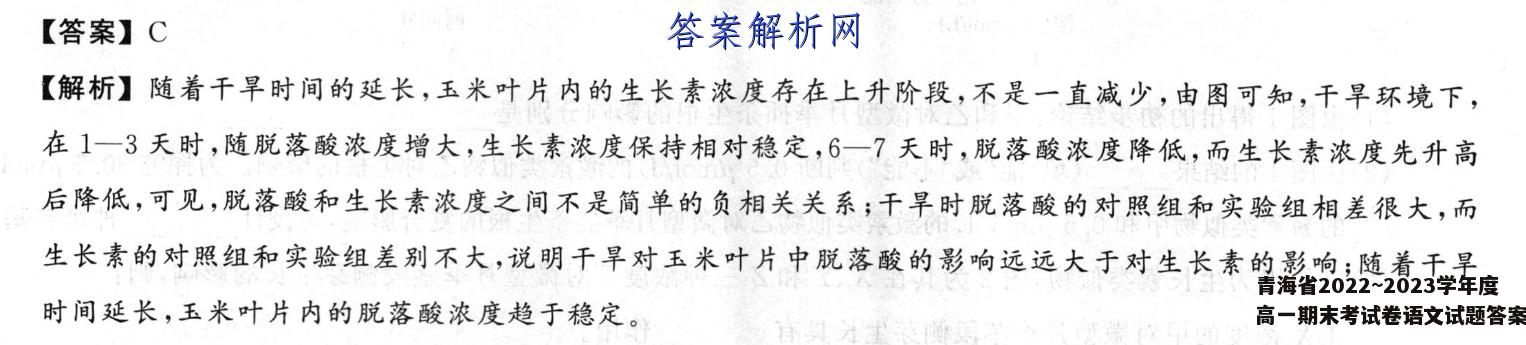 【答案】C
答案解析网
【解析】随着干旱时间的延长,玉米叶片内的生长素浓度存在上升阶段,不是一直减少,由图可知,干旱环境下,
在1—3天时,随脱落酸浓度增大,生长素浓度保持相对稳定,6—7天时,脱落酸浓度降低,而生长素浓度先升高
后降低,可见,脱落酸和生长素浓度之间不是简单的负相关关系;干旱时脱落酸的对照组和实验组相差很大,而
生长素的对照组和实验组差别不大,说明干旱对玉米叶片中脱落酸的影响远远大于对生长素的影响;随着干旱
时间延长,玉米叶片内的脱落酸浓度趋于稳定。
青海省2022~2023学年度
高一期末考试卷语文试题答案